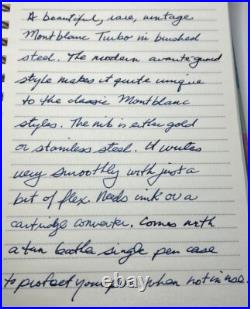 A beautiful, rare, vintage
Montblanc Turbo in brushed
steel. The modern avante guard
style makes it quite unique
to the classic Montblanc
styles. The nib is either gold
or stainless steel. It writes
very smoothly with just a
bit of flex. Needs ink or a
cartridge converter. Comes with
a tan leather single pen case
to protect your pen when not in use.